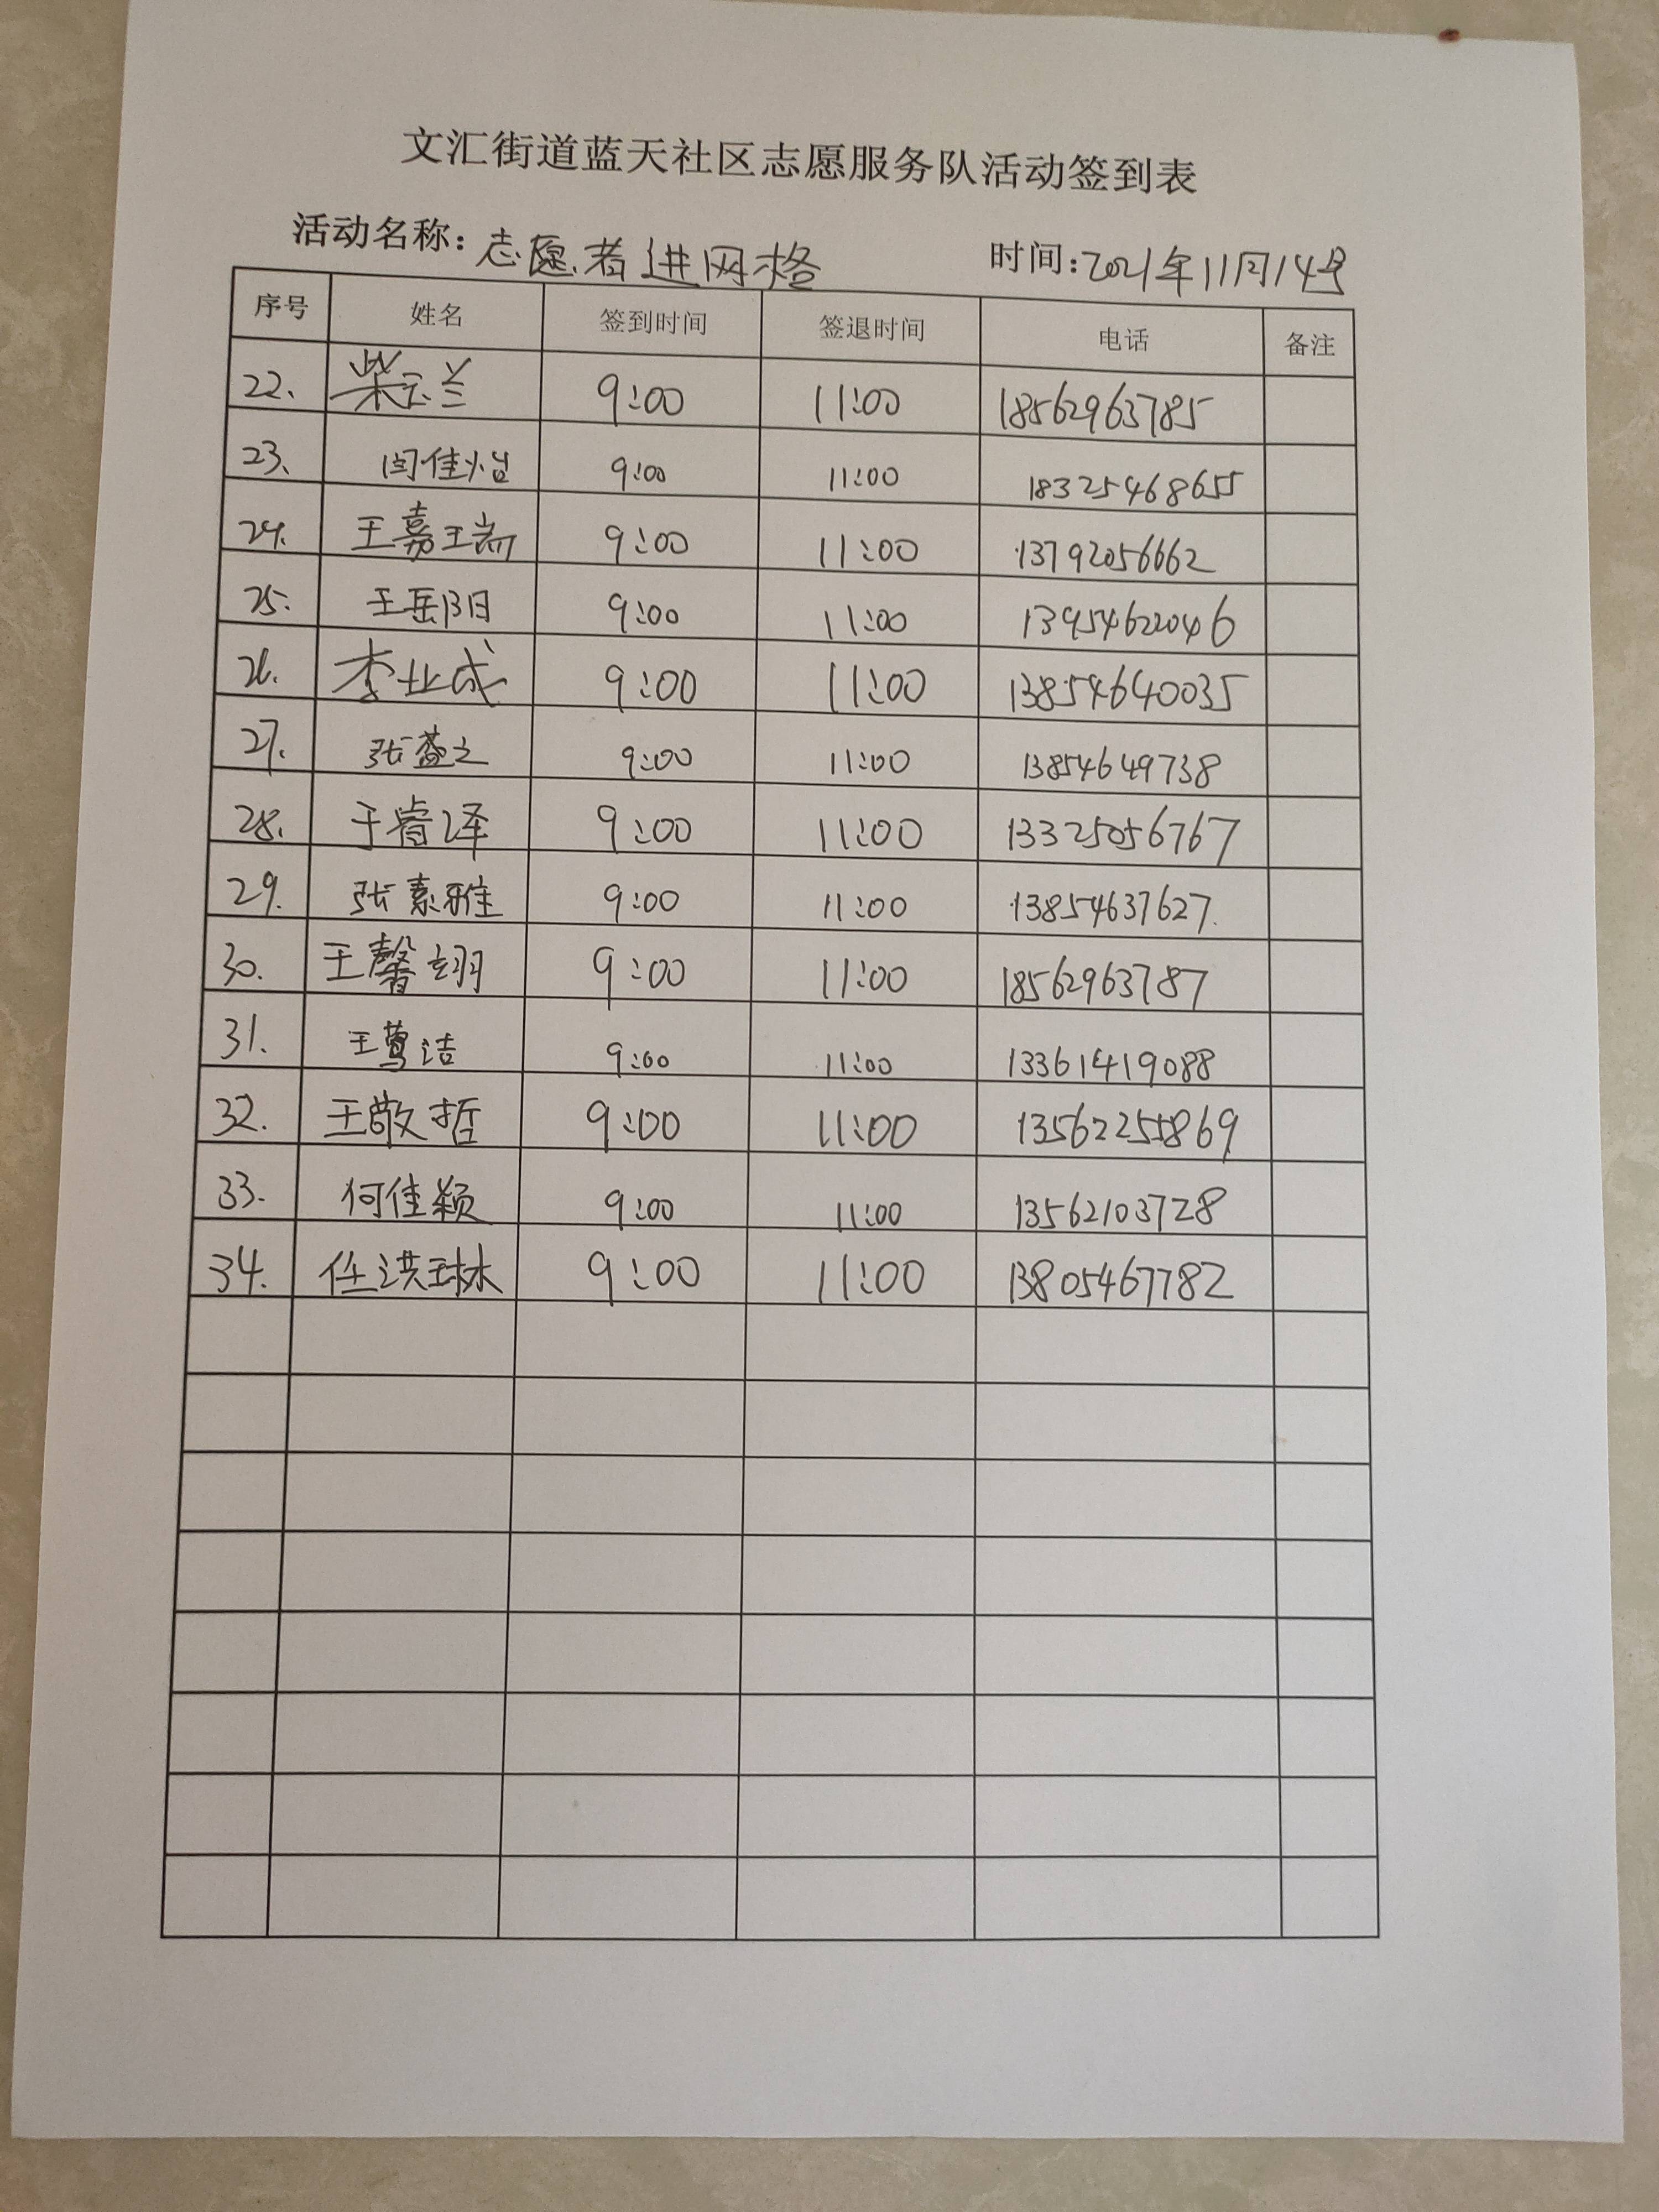 文汇街道蓝天社区志愿服务队活动签到表
活动名称：志愿者进网格 时间：2021年11月14号
序号 姓名 签到时间 签退时间 电话 备注
22. 柴玉兰 9:00 11:00 18562963785
23、 闫佳怡 9:00 11:00 18325468655
24. 王嘉瑞 9:00 11:00 13792056662
25. 王岳阳 9:00 11:00 13954622046
26. 李业成 9:00 11:00 13854640035
27. 张益之 9:00 11:00 13854649738
28. 于睿泽 9:00 11:00 13325056767
29. 张素雅 9:00 11:00 13854637627
30. 王馨翊 9:00 11:00 18562963787
31. 王莺洁 9:00 11:00 13361419088
32. 王敬哲 9:00 11:00 13562255869
33. 何佳颖 9:00 11:00 13562103728
34. 任洪琳 9:00 11:00 13805467782